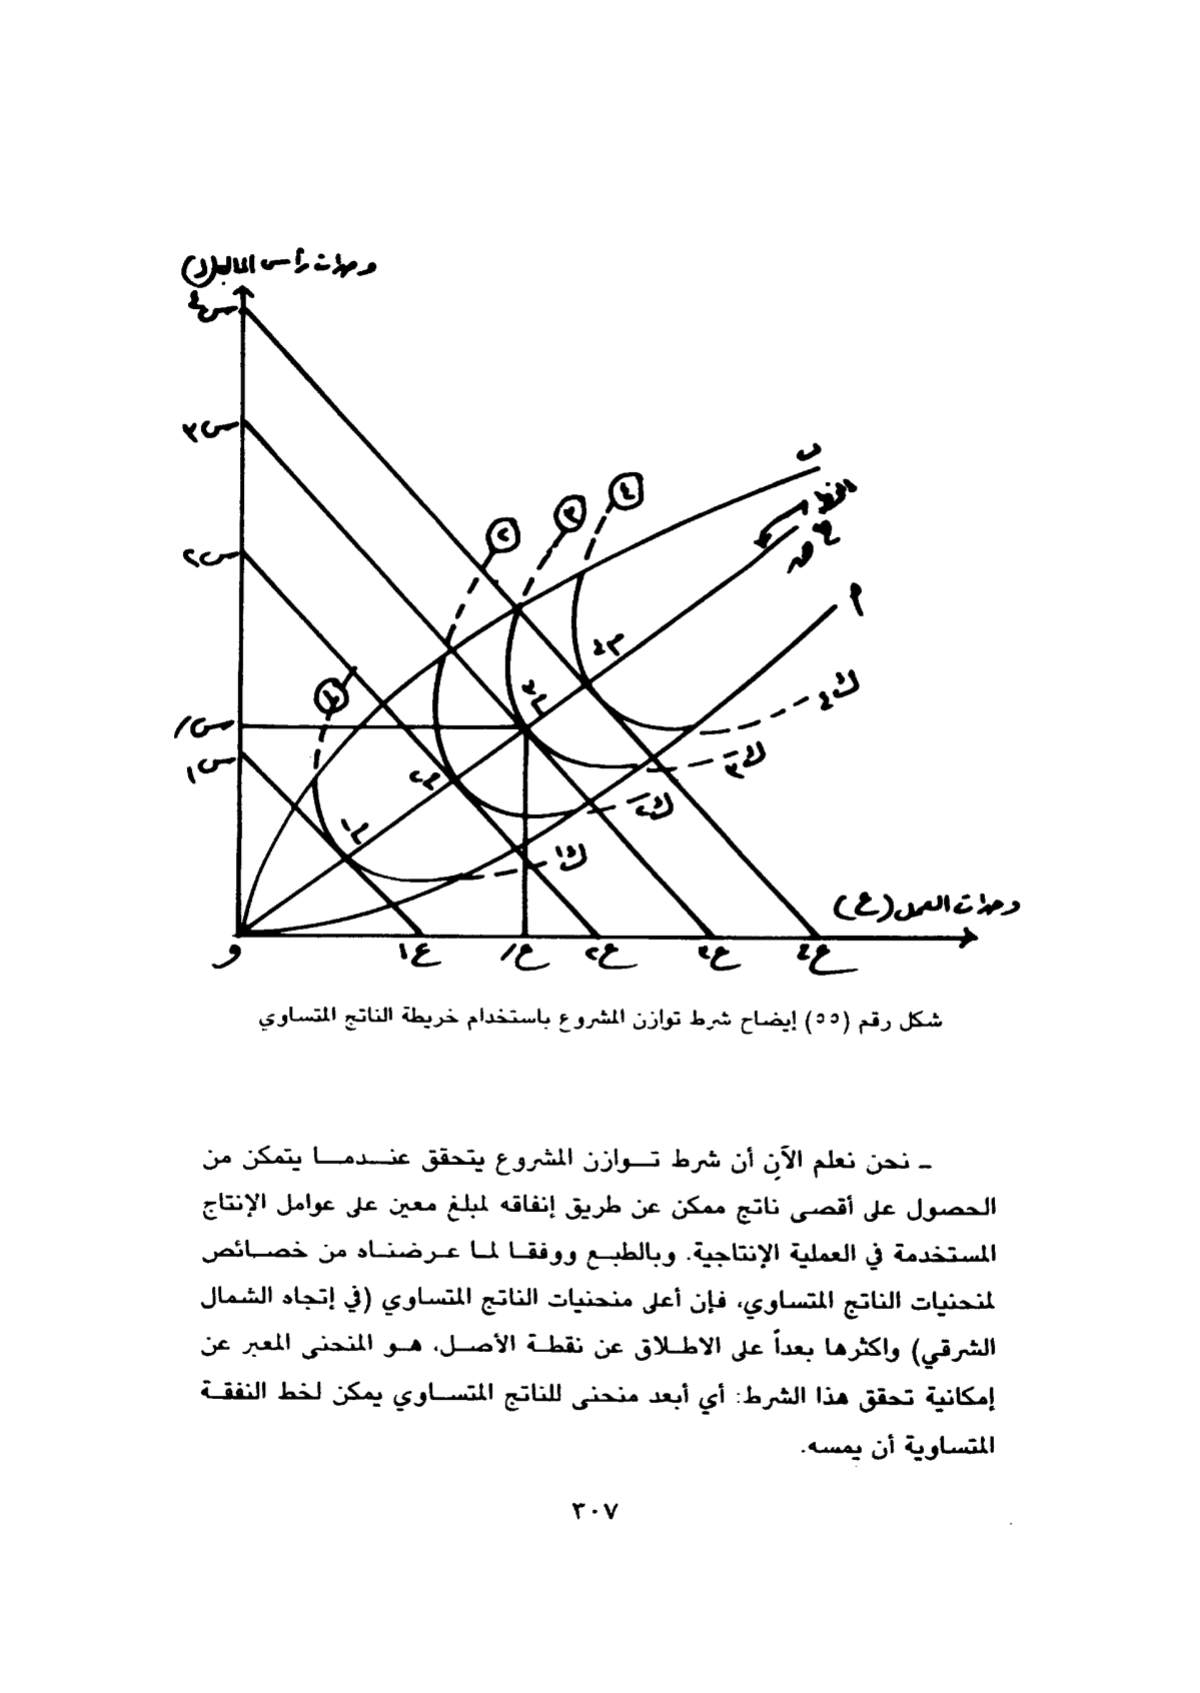 وحدات رأس المال (ل)
س٤
س٣
س٢
س/
س١
ب
الخط
و ص ع
أ
٤
٣
٢
١
م٤
م٣
م٢
م١
ك٤
ك٣
ك٢
ك١
وحدات العمل (ع)
و
ع١
ع/
ع٢
ع٣
ع٤
شكل رقم (٥٥) إيضاح شرط توازن المشروع باستخدام خريطة الناتج المتساوي
ـ نحن نعلم الآن أن شرط تـوازن المشروع يتحقق عنـدمـا يتمكن من
الحصول على أقصى ناتج ممكن عن طريق إنفاقه لمبلغ معين على عوامل الإنتاج
المستخدمة في العملية الإنتاجية. وبالطبـع ووفقـا لمـا عـرضنـاه من خصـائص
لمنحنيات الناتج المتساوي، فإن أعلى منحنيات الناتج المتساوي (في إتجاه الشمال
الشرقي) واكثرها بعداً على الاطـلاق عن نقطـة الأصـل، هـو المنحنى المعبر عن
إمكانية تحقق هذا الشرط: أي أبعد منحنى للناتج المتسـاوي يمكن لخط النفقـة
المتساوية أن يمسه.
٣٠٧